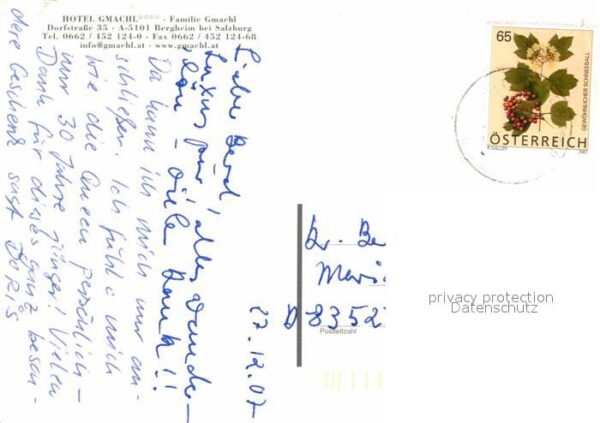 HOTEL GMACHL**** · Familie Gmachl
Dorfstraße 35 · A-5101 Bergheim bei Salzburg
Tel. 0662 / 452 124-0 · Fax 0662 / 452 124-68
info@gmachl.at · www.gmachl.at
Liebe Bernd!
Luxus pur, alles wunder-
schön - viele Dank!!
Da kann ich mich nur an-
schließen. Ich fühle mich
wie die Queen persönlich -
nur 30 Jahre jünger! Vielen
Dank für dieses ganz beson-
dere Geschenk sagt DORIS
27.12.07
65
GEWÖHNLICHER SCHNEEBALL
ÖSTERREICH
B. GALLER
2007
Dr. Be
D 8352
Postleitzahl
privacy protection
Datenschutz